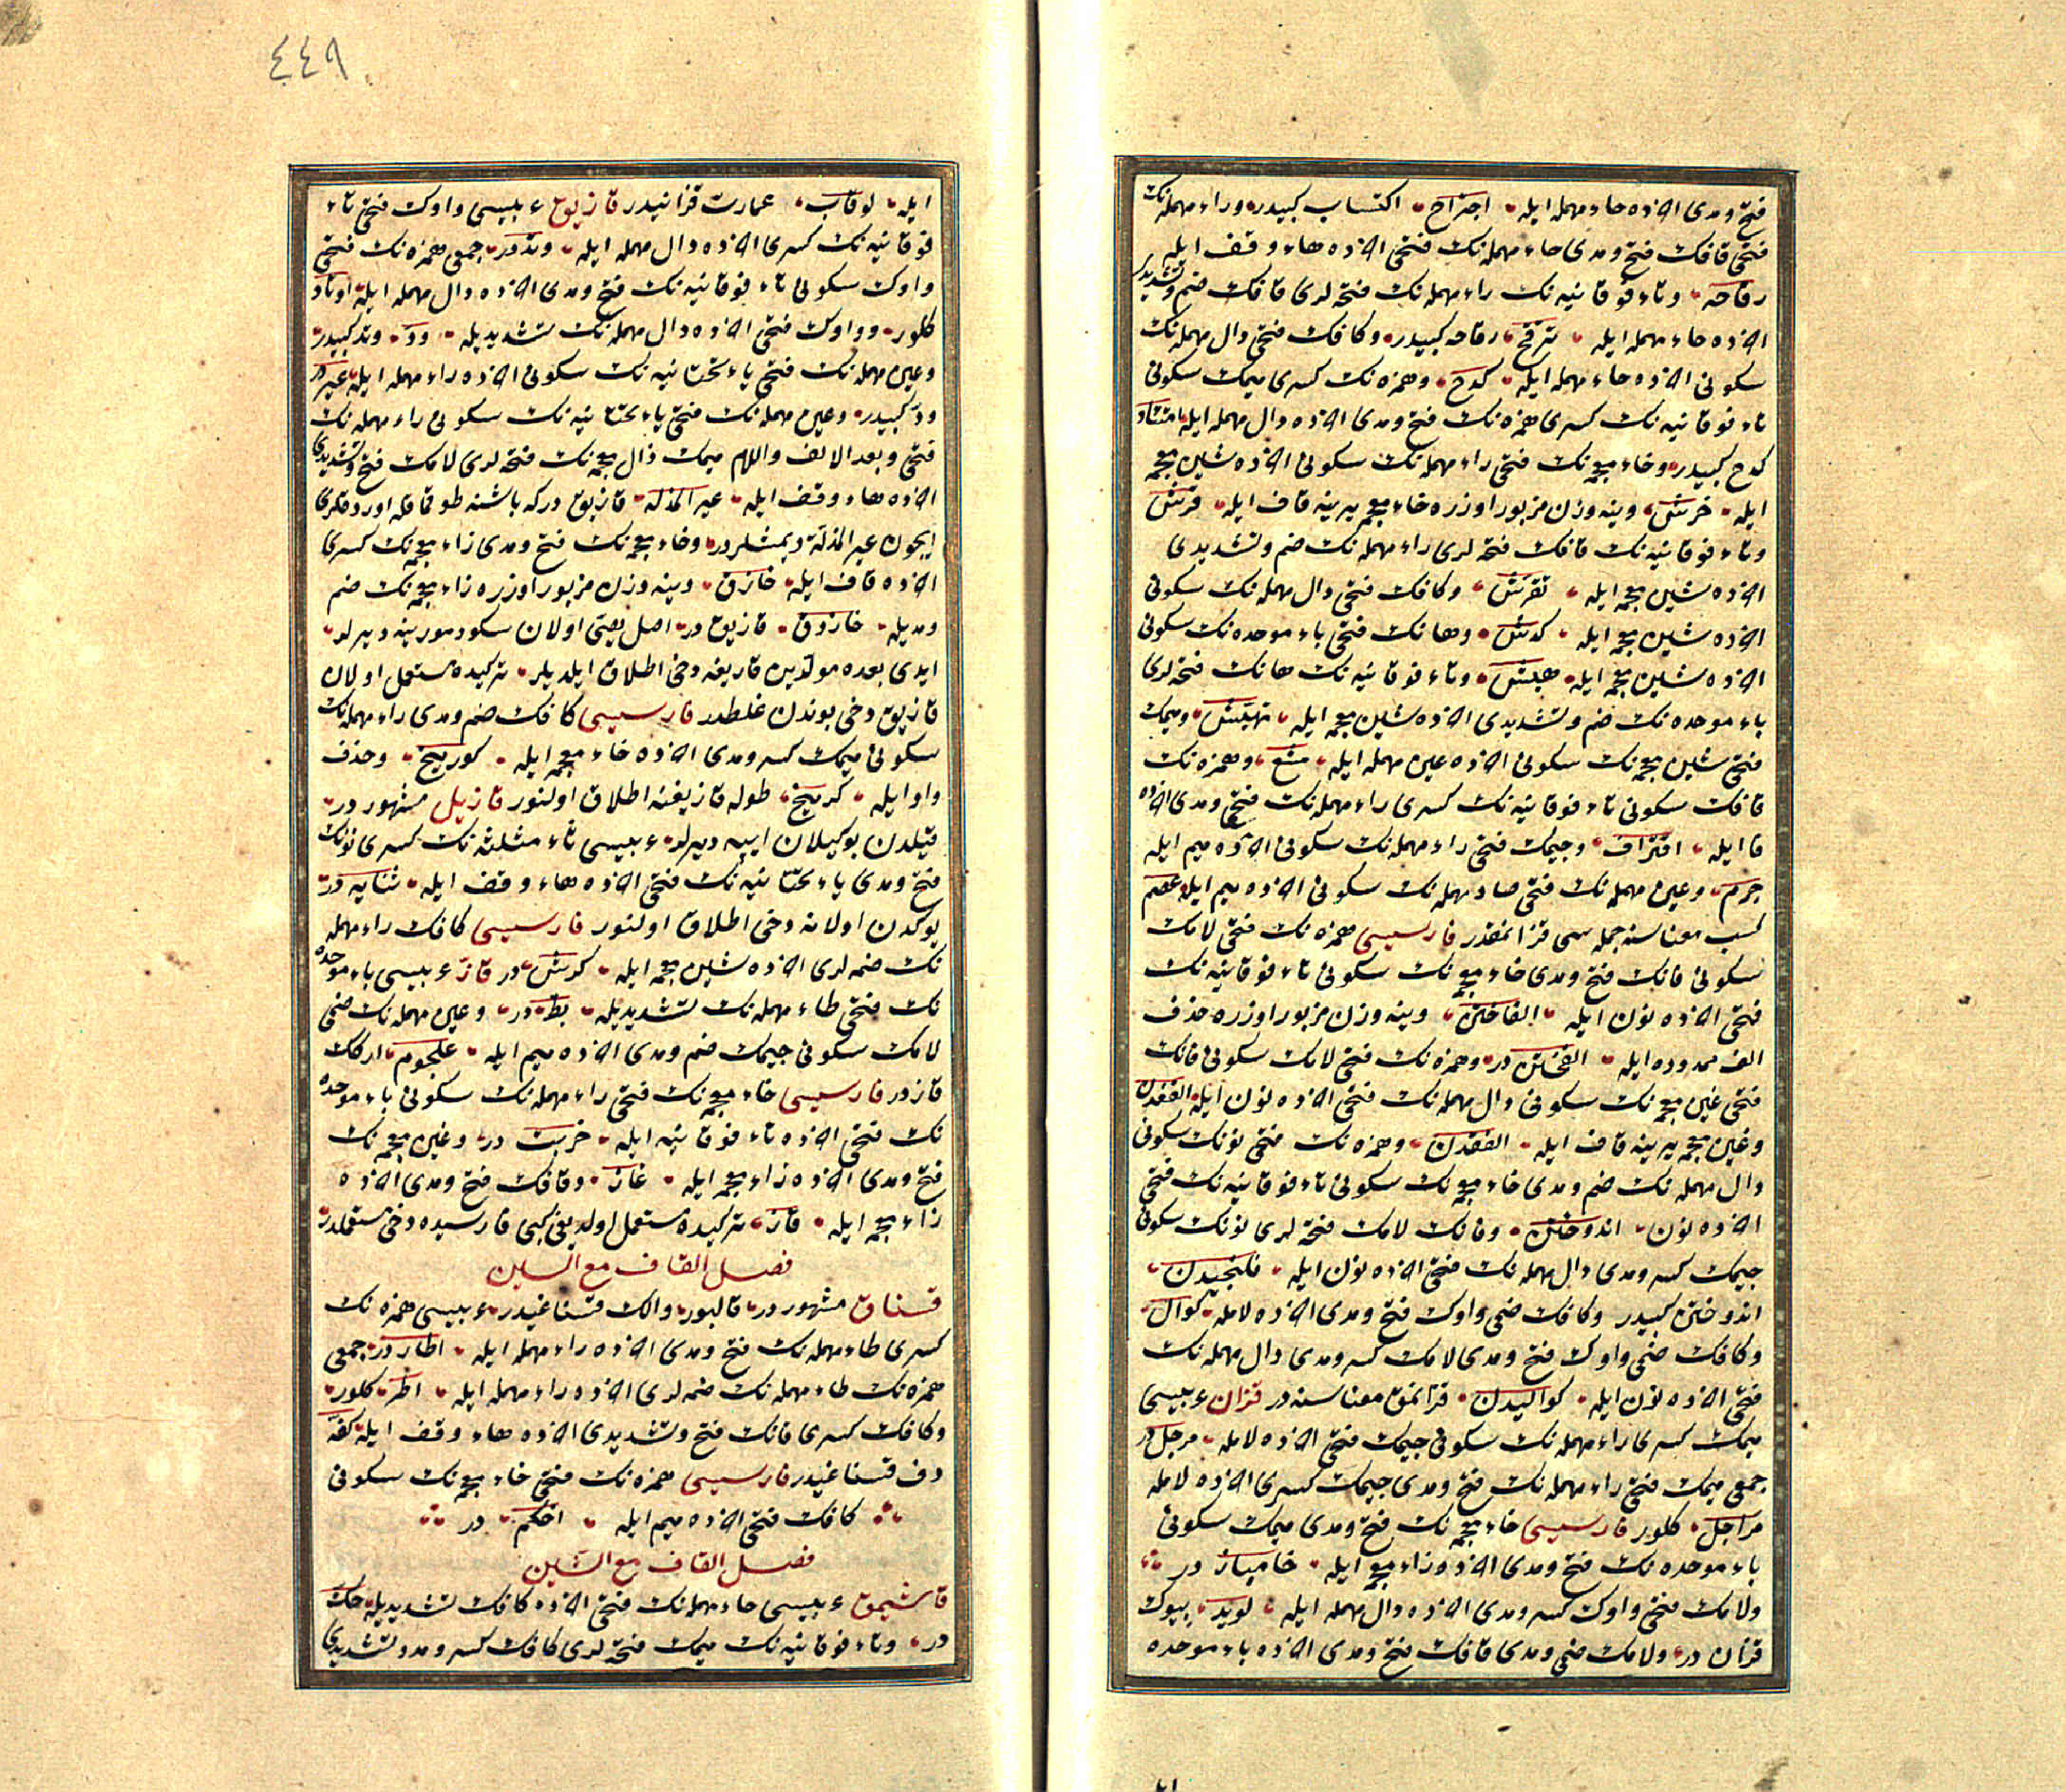 فتح ومدى اخرده حاء مهمله ايله اجتراح اكتساب كبيدر وراء مهمله نك
فتحى قافك فتح ومدى حاء مهمله نك فتحى اخرده هاء وقف ايله
رقاحه وتاء فوقانيه نك راء مهمله نك فتحه لرى قافك ضم وتشديدى
اخرده حاء مهمله ايله ترقح رقاحه كبيدر وكافك فتحى دال مهمله نك
سكونى اخرده حاء مهمله ايله كدح وهمزه نك كسرى ميمك سكونى
تاء فوقانيه نك كسرى همزه نك فتح ومدى اخرده دال مهمله ايله امتئاد
كدح كبيدر وخاء معجمه نك فتحى راء مهمله نك سكونى اخرده شين معجمه
ايله خرش وينه وزن مزبور اوزره خاء معجمه يرينه قاف ايله قرش
وتاء فوقانيه نك قافك فتحه لرى راء مهمله نك ضم وتشديدى
اخرده شين معجمه ايله تقرش وكافك فتحى دال مهمله نك سكونى
اخرده شين معجمه ايله كدش وهانك فتحى باء موحده نك سكونى
اخرده شين معجمه ايله هبش وتاء فوقانيه نك هانك فتحه لرى
باء موحده نك ضم وتشديدى اخرده شين معجمه ايله تهبش وميمك
فتحى شين معجمه نك سكونى اخرده عين مهمله ايله مشع وهمزه نك
قافك سكونى تاء فوقانيه نك كسرى راء مهمله نك فتح ومدى اخرده
فا ايله اقتراف وجيمك فتحى راء مهمله نك سكونى اخرده ميم ايله
جرم وعين مهمله نك فتحى صاد مهمله نك سكونى اخرده ميم ايله عصم
كسب معناسنه جمله سى قزانمقدر فارسيسى همزه نك فتحى لامك
سكونى فانك فتح ومدى خاء معجمه نك سكونى تاء فوقانيه نك
فتحى اخرده نون ايله الفاختن وينه وزن مزبور اوزره حذف
الف ممدوده ايله الفختن در وهمزه نك فتحى لامك سكونى فانك
فتحى غين معجمه نك سكونى دال مهمله نك فتحى اخرده نون ايله الفغدن
وغين معجمه يرينه قاف ايله الفقدن وهمزه نك فتحى نونك سكونى
دال مهمله نك ضم ومدى خاء معجمه نك سكونى تاء فوقانيه نك فتحى
اخرده نون اندوختن وفانك لامك فتحه لرى نونك سكونى
جيمك كسر ومدى دال مهمله نك فتحى اخرده نون ايله فلنجيدن
اندوختن كبيدر وكافك ضمى واوك فتح ومدى اخرده لامله كوال
وكافك ضمى واوك فتح ومدى لامك كسر ومدى دال مهمله نك
فتحى اخرده نون ايله كواليدن قزانمق معناسنه در قزان عربيسى
ميمك كسرى راء مهمله نك سكونى جيمك فتحى اخرده لامله مرجل در
جمعى ميمك فتحى راء مهمله نك فتح ومدى جيمك كسرى اخرده لامله
مراجل كلور فارسيسى خاء معجمه نك فتح ومدى ميمك سكونى
باء موحده نك فتح ومدى اخرده زاء معجمه ايله خامباز در
ولامك فتحى واوك كسر ومدى اخرده دال مهمله ايله لويد بيوك
قزان در ولامك ضمى ومدى قافك فتح ومدى اخرده باء موحده
ايله
٤٤٩
ايله لوقاب عمارت قزانيدر قازيوع عربيسى واوك فتحى تاء
فوقانيه نك كسرى اخرده دال مهمله ايله وتد در جمعى همزه نك فتحى
واوك سكونى تاء فوقانيه نك فتح ومدى اخرده دال مهمله ايله اوتاد
كلور وواوك فتحى اخرده دال مهمله نك تشديديله ود وتد كبيدر
وعين مهمله نك فتحى ياء تحتانيه نك سكونى اخرده راء مهمله ايله عير در
ود كبيدر وعين مهمله نك فتحى ياء تحتانيه نك سكونى راء مهمله نك
فتحى وبعد الالف واللام ميمك ذال معجمه نك فتحه لرى لامك فتح وتشديدى
اخرده هاء وقف ايله عير المذلة قازيوع دركه باشنه طوقماقله اوردقلرى
ايچون عير المذلة ديمشلردر وخاء معجمه نك فتح ومدى زاء معجمه نك كسرى
اخرده قاف ايله خازق وينه وزن مزبور اوزره زاء معجمه نك ضم
ومديله خازوق قازيوع در اصل يصى اولان سكود مورينه ديرلر
ايدى بعده مولدين قازيغه دخى اطلاق ايلديلر تركيده مستعمل اولان
قازيوق دخى بوندن غلطدر فارسيسى كافك ضم ومدى راء مهمله نك
سكونى ميمك كسر ومدى اخرده خاء معجمه ايله كورميخ وحذف
واو ايله كرميخ طوله قازيغنه اطلاق اولنور قازيل مشهور در
قيلدن بوكيلان ايپه ديرلر عربيسى ثاء مثلثه نك كسرى نونك
فتح ومدى ياء تحتانيه نك فتحى اخرده هاء وقف ايله ثنايه در
يوكدن اولانه دخى اطلاق اولنور فارسيسى كافك راء مهمله
نك ضمه لرى اخرده شين معجمه ايله كرش در قاز عربيسى باء موحده
نك فتحى طاء مهمله نك تشديديله بط در وعين مهمله نك ضمى
لامك سكونى جيمك ضم ومدى اخرده ميم ايله علجوم اركك
قازدر فارسيسى خاء معجمه نك فتحى راء مهمله نك سكونى باء موحده
نك فتحى اخرده تاء فوقانيه ايله خربت در وغين معجمه نك
فتح ومدى اخرده زاء معجمه ايله غاز وقافك فتح ومدى اخرده
زاء معجمه ايله قاز تركيده مستعمل اولديغى كبى فارسيده دخى مستعملدر
فصل القاف مع السين
قسناق مشهور در قالبور والك قسناغيدر عربيسى همزه نك
كسرى طاء مهمله نك فتح ومدى اخرده راء مهمله ايله اطار در جمعى
همزه نك طاء مهمله نك ضمه لرى اخرده راء مهمله ايله اطر كلور
وكافك كسرى فانك فتح وتشديدى اخرده هاء وقف ايله كفه
دف قسناغيدر فارسيسى همزه نك فتحى خاء معجمه نك سكونى
كافك فتحى اخرده ميم ايله اخكم در
فصل القاف مع الشين
قاشيمق عربيسى حاء مهمله نك فتحى اخرده كافك تشديديله حك
در وتاء فوقانيه نك ميمك فتحه لرى كافك كسر ومد وتشديدى